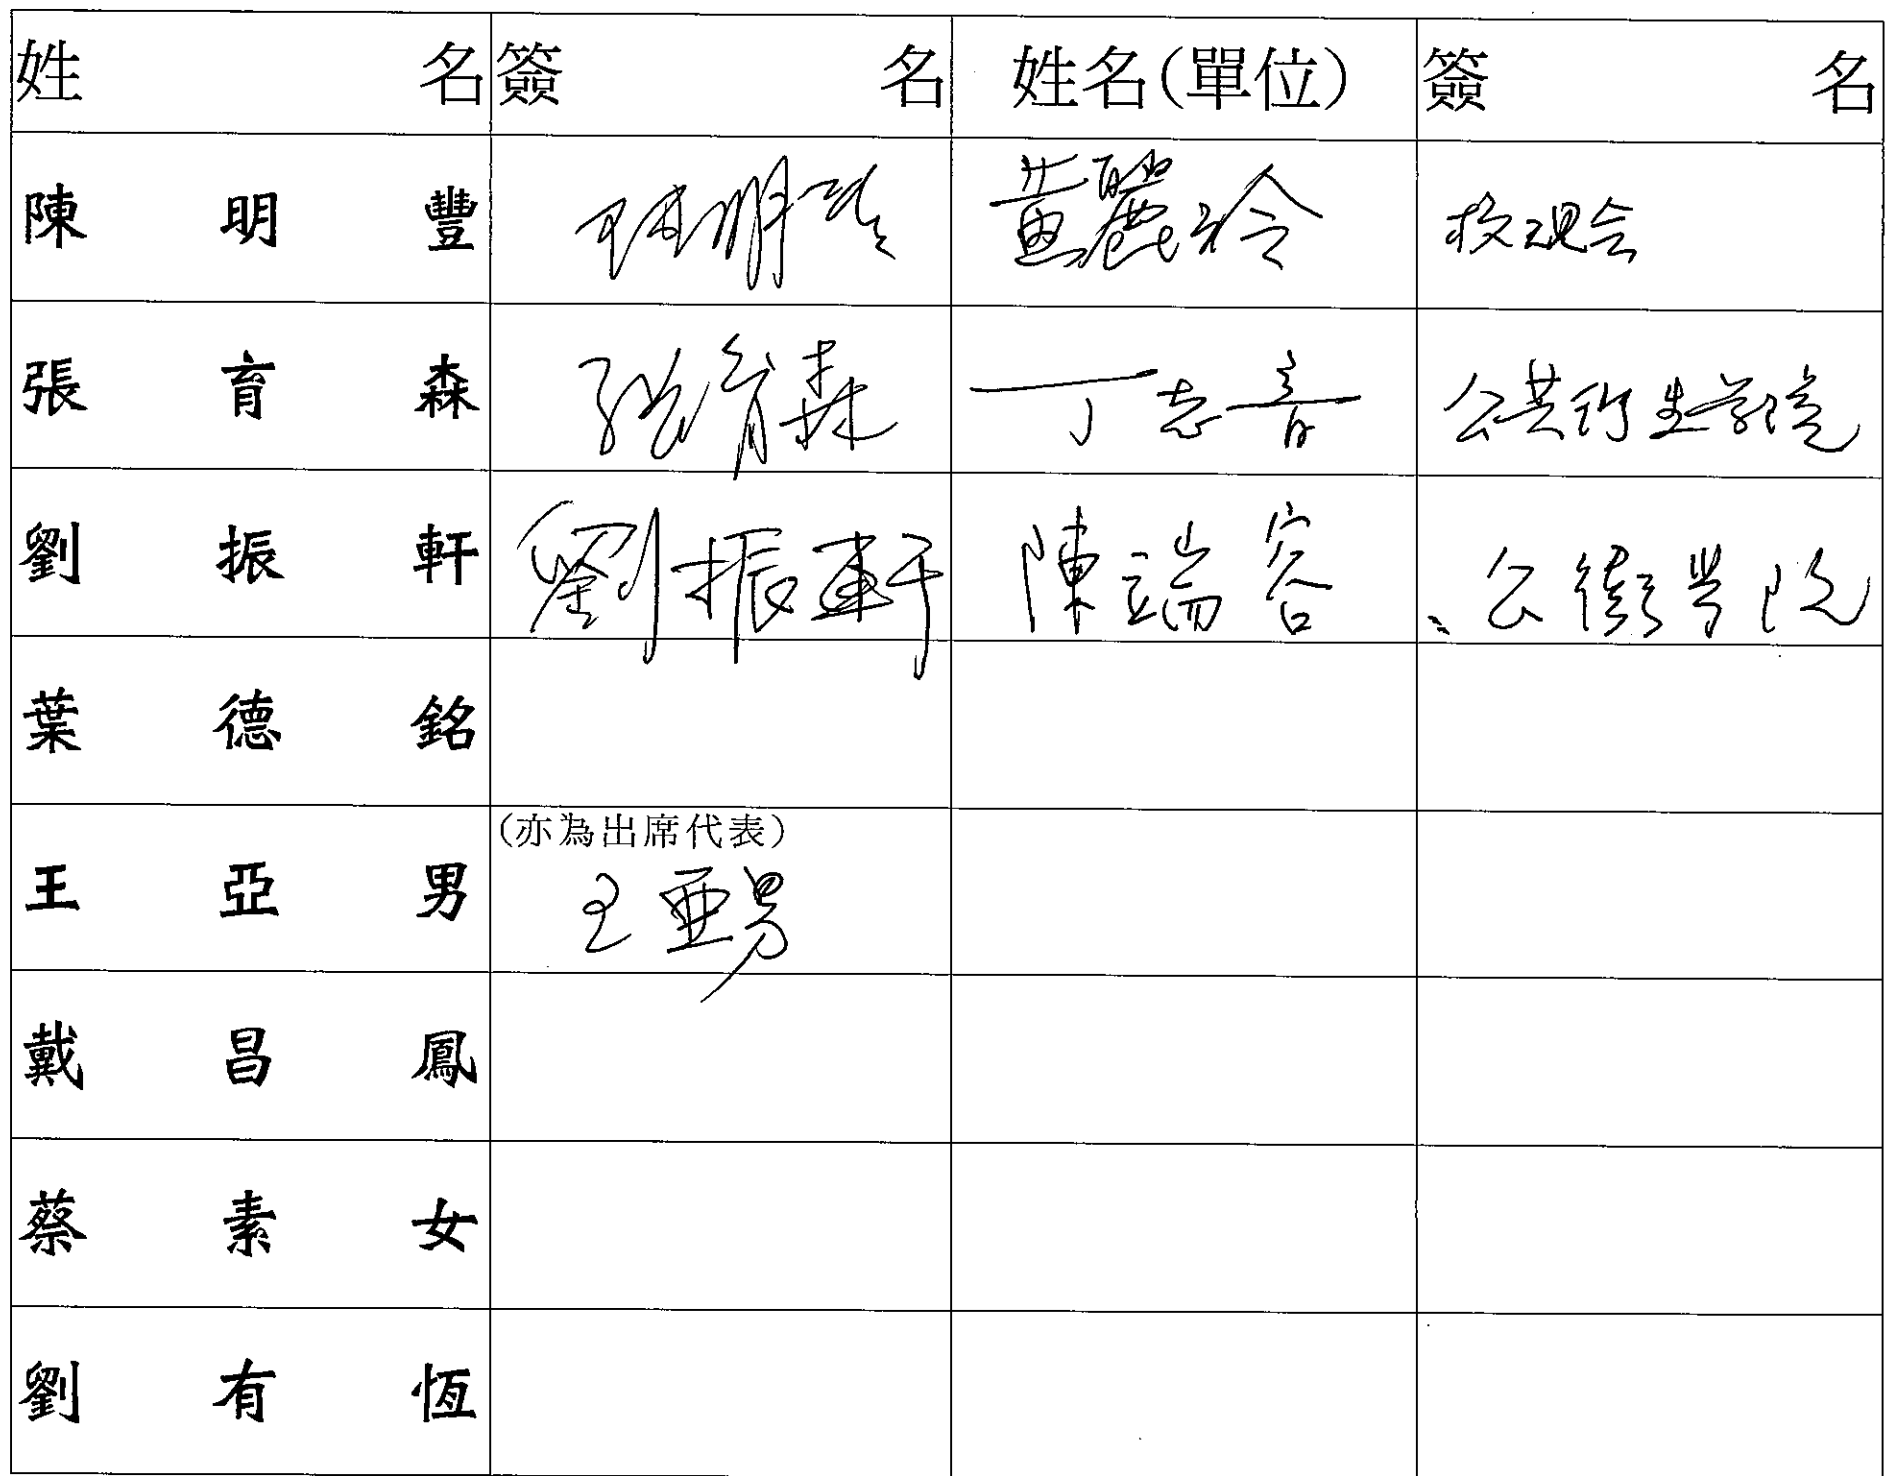 姓名 簽名 姓名(單位) 簽名
陳明豐 陳明豐 黃麗玲 校規會
張育森 張育森 丁志音 公共衛生學院
劉振軒 劉振軒 陳端容 、公衛學院
葉德銘
(亦為出席代表)
王亞男 王亞男
戴昌鳳
蔡素女
劉有恆